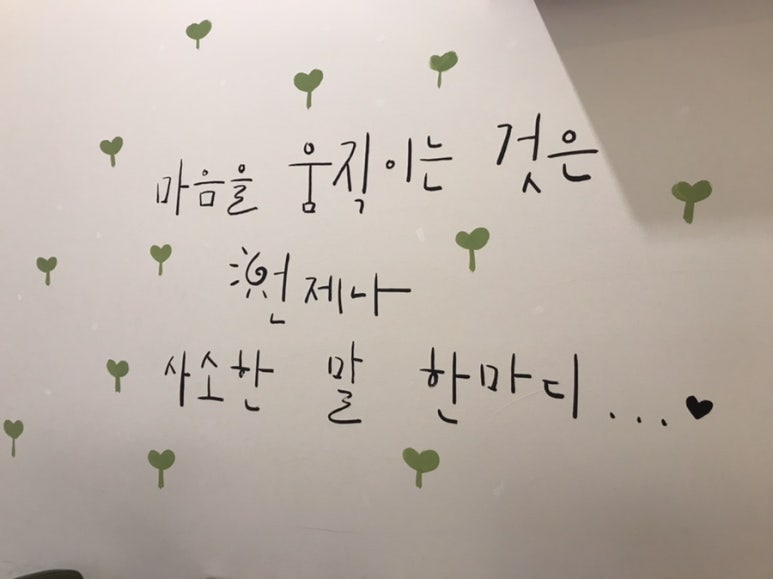 마음을 움직이는 것은
언제나
사소한 말 한마디...♥